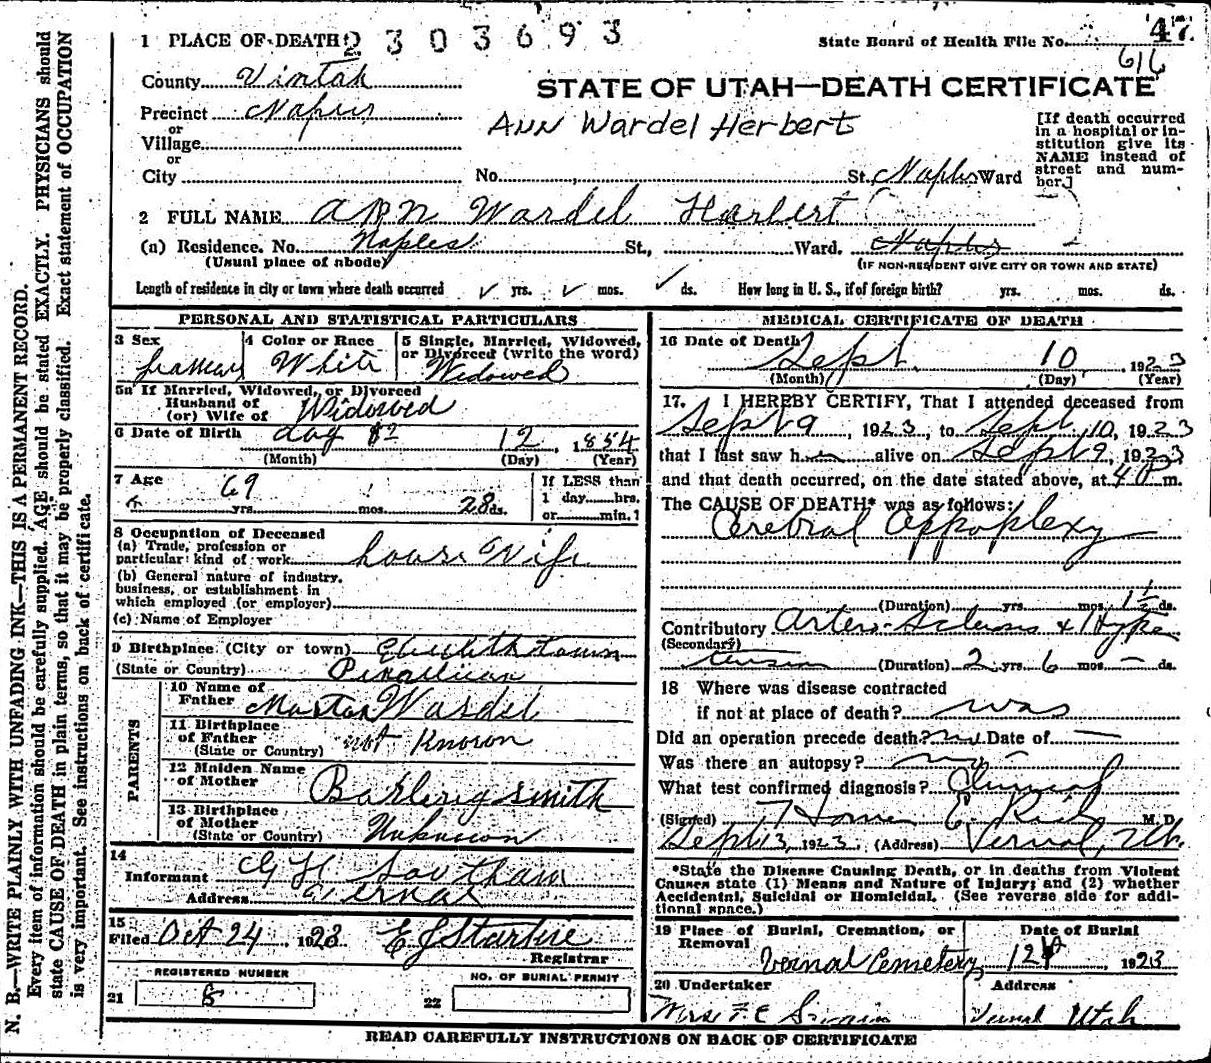 47
1 PLACE OF DEATH 2303693
State Board of Health File No.
616
County Uintah
STATE OF UTAH—DEATH CERTIFICATE
Precinct Naples
Ann Wardel Herbert
or
Village
or
City No. St. Naples Ward
[If death occurred
in a hospital or in-
stitution give its
NAME instead of
street and num-
ber.]
2 FULL NAME Ann Wardel Herbert
(a) Residence. No. Naples St., Ward. Naples
(Usual place of abode) (IF NON-RESIDENT GIVE CITY OR TOWN AND STATE)
Length of residence in city or town where death occurred yrs. mos. ds. How long in U. S., if of foreign birth? yrs. mos. ds.
PERSONAL AND STATISTICAL PARTICULARS
3 Sex
4 Color or Race White
5 Single, Married, Widowed,
or Divorced (write the word)
Widowed
5a If Married, Widowed, or Divorced
Husband of
(or) Wife of Widowed
6 Date of Birth 12, 1854
(Month) (Day) (Year)
7 Age 69 yrs. mos. 28 ds.
If LESS than
1 day hrs.
or min.?
8 Occupation of Deceased
(a) Trade, profession or
particular kind of work house Wife
(b) General nature of industry,
business, or establishment in
which employed (or employer)
(c) Name of Employer
9 Birthplace (City or town)
(State or Country)
PARENTS
10 Name of
Father Wardel
11 Birthplace
of Father
(State or Country) not Known
12 Maiden Name
of Mother smith
13 Birthplace
of Mother
(State or Country) Unknown
14
Informant G H Southam
Address Vernal
15
Filed Oct 24, 1923 E J
Registrar
REGISTERED NUMBER
21 8
NO. OF BURIAL PERMIT
22
MEDICAL CERTIFICATE OF DEATH
16 Date of Death Sept. 10 1923
(Month) (Day) (Year)
17. I HEREBY CERTIFY, That I attended deceased from
Sept 9, 1923, to Sept 10, 1923
that I last saw her alive on Sept 9, 1923
and that death occurred, on the date stated above, at 4 m.
The CAUSE OF DEATH* was as follows:
Cerebral Appoplexy
(Duration) yrs. mos. 1½ ds.
Contributory Arterio-Sclerosis + Hyper
(Secondary)
tension (Duration) 2 yrs. 6 mos. — ds.
18 Where was disease contracted
if not at place of death? was
Did an operation precede death? no Date of —
Was there an autopsy? no
What test confirmed diagnosis? Clinical
(Signed) Homer E. Rich M.D.
Sept 13, 1923. (Address) Vernal, Ut.
*State the Disease Causing Death, or in deaths from Violent
Causes state (1) Means and Nature of Injury; and (2) whether
Accidental, Suicidal or Homicidal. (See reverse side for addi-
tional space.)
19 Place of Burial, Cremation, or
Removal
Vernal Cemetery
Date of Burial
12, 1923
20 Undertaker
Mrs. F E Swain
Address
Vernal Utah
READ CAREFULLY INSTRUCTIONS ON BACK OF CERTIFICATE
N. B.—WRITE PLAINLY WITH UNFADING INK—THIS IS A PERMANENT RECORD.
Every item of information should be carefully supplied. AGE should be stated EXACTLY. PHYSICIANS should
state CAUSE OF DEATH in plain terms, so that it may be properly classified. Exact statement of OCCUPATION
is very important. See instructions on back of certificate.